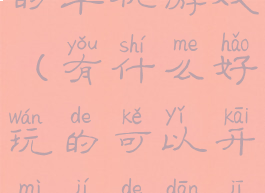 的单机游戏
yǒu shí me hǎo
（有什么好
wán de kě yǐ kāi
玩的可以开
mì jí de dān jī